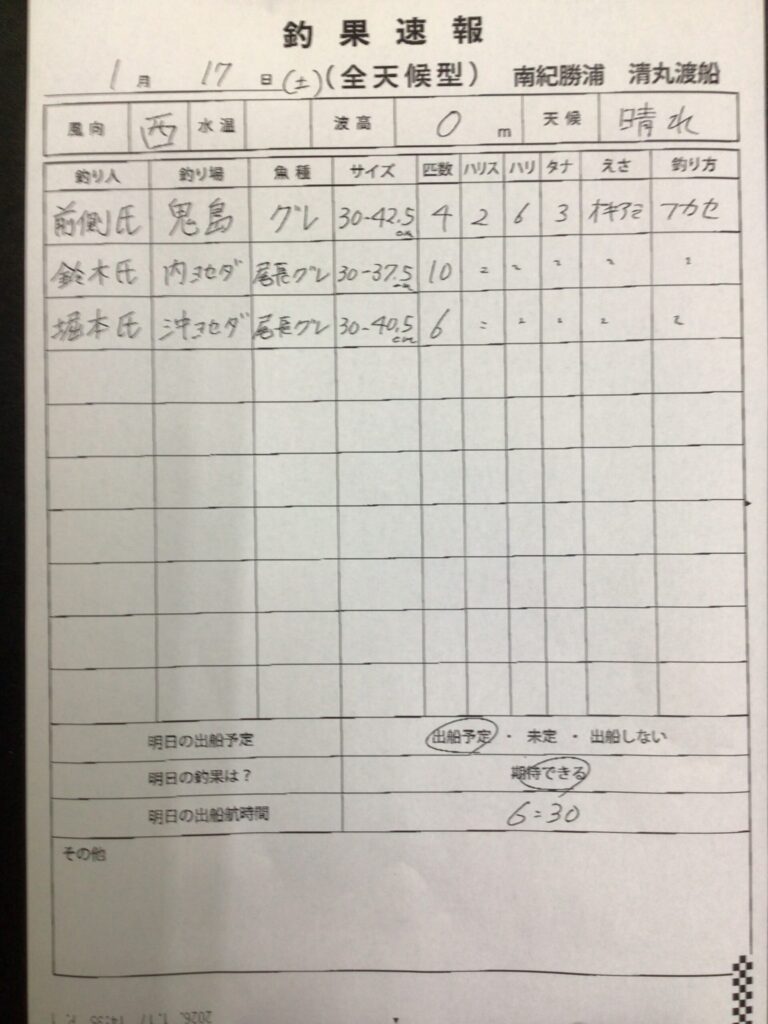 釣果速報
1月17日(土)(全天候型) 南紀勝浦 清丸渡船
風向 西 水温 波高 0 m 天候 晴れ
釣り人 釣り場 魚種 サイズ 匹数 ハリス ハリ タナ えさ 釣り方
前側氏 鬼島 グレ 30-42.5cm 4 2 6 3 オキアミ フカセ
鈴木氏 内ヨセダ 尾長グレ 30-37.5cm 10 〃 〃 〃 〃 〃
堀本氏 沖ヨセダ 尾長グレ 30-40.5cm 6 〃 〃 〃 〃 〃
明日の出船予定 出船予定 ・ 未定 ・ 出船しない
明日の釣果は? 期待できる
明日の出船航時間 6:30
その他
2026. 1.17 14:35 P. 1